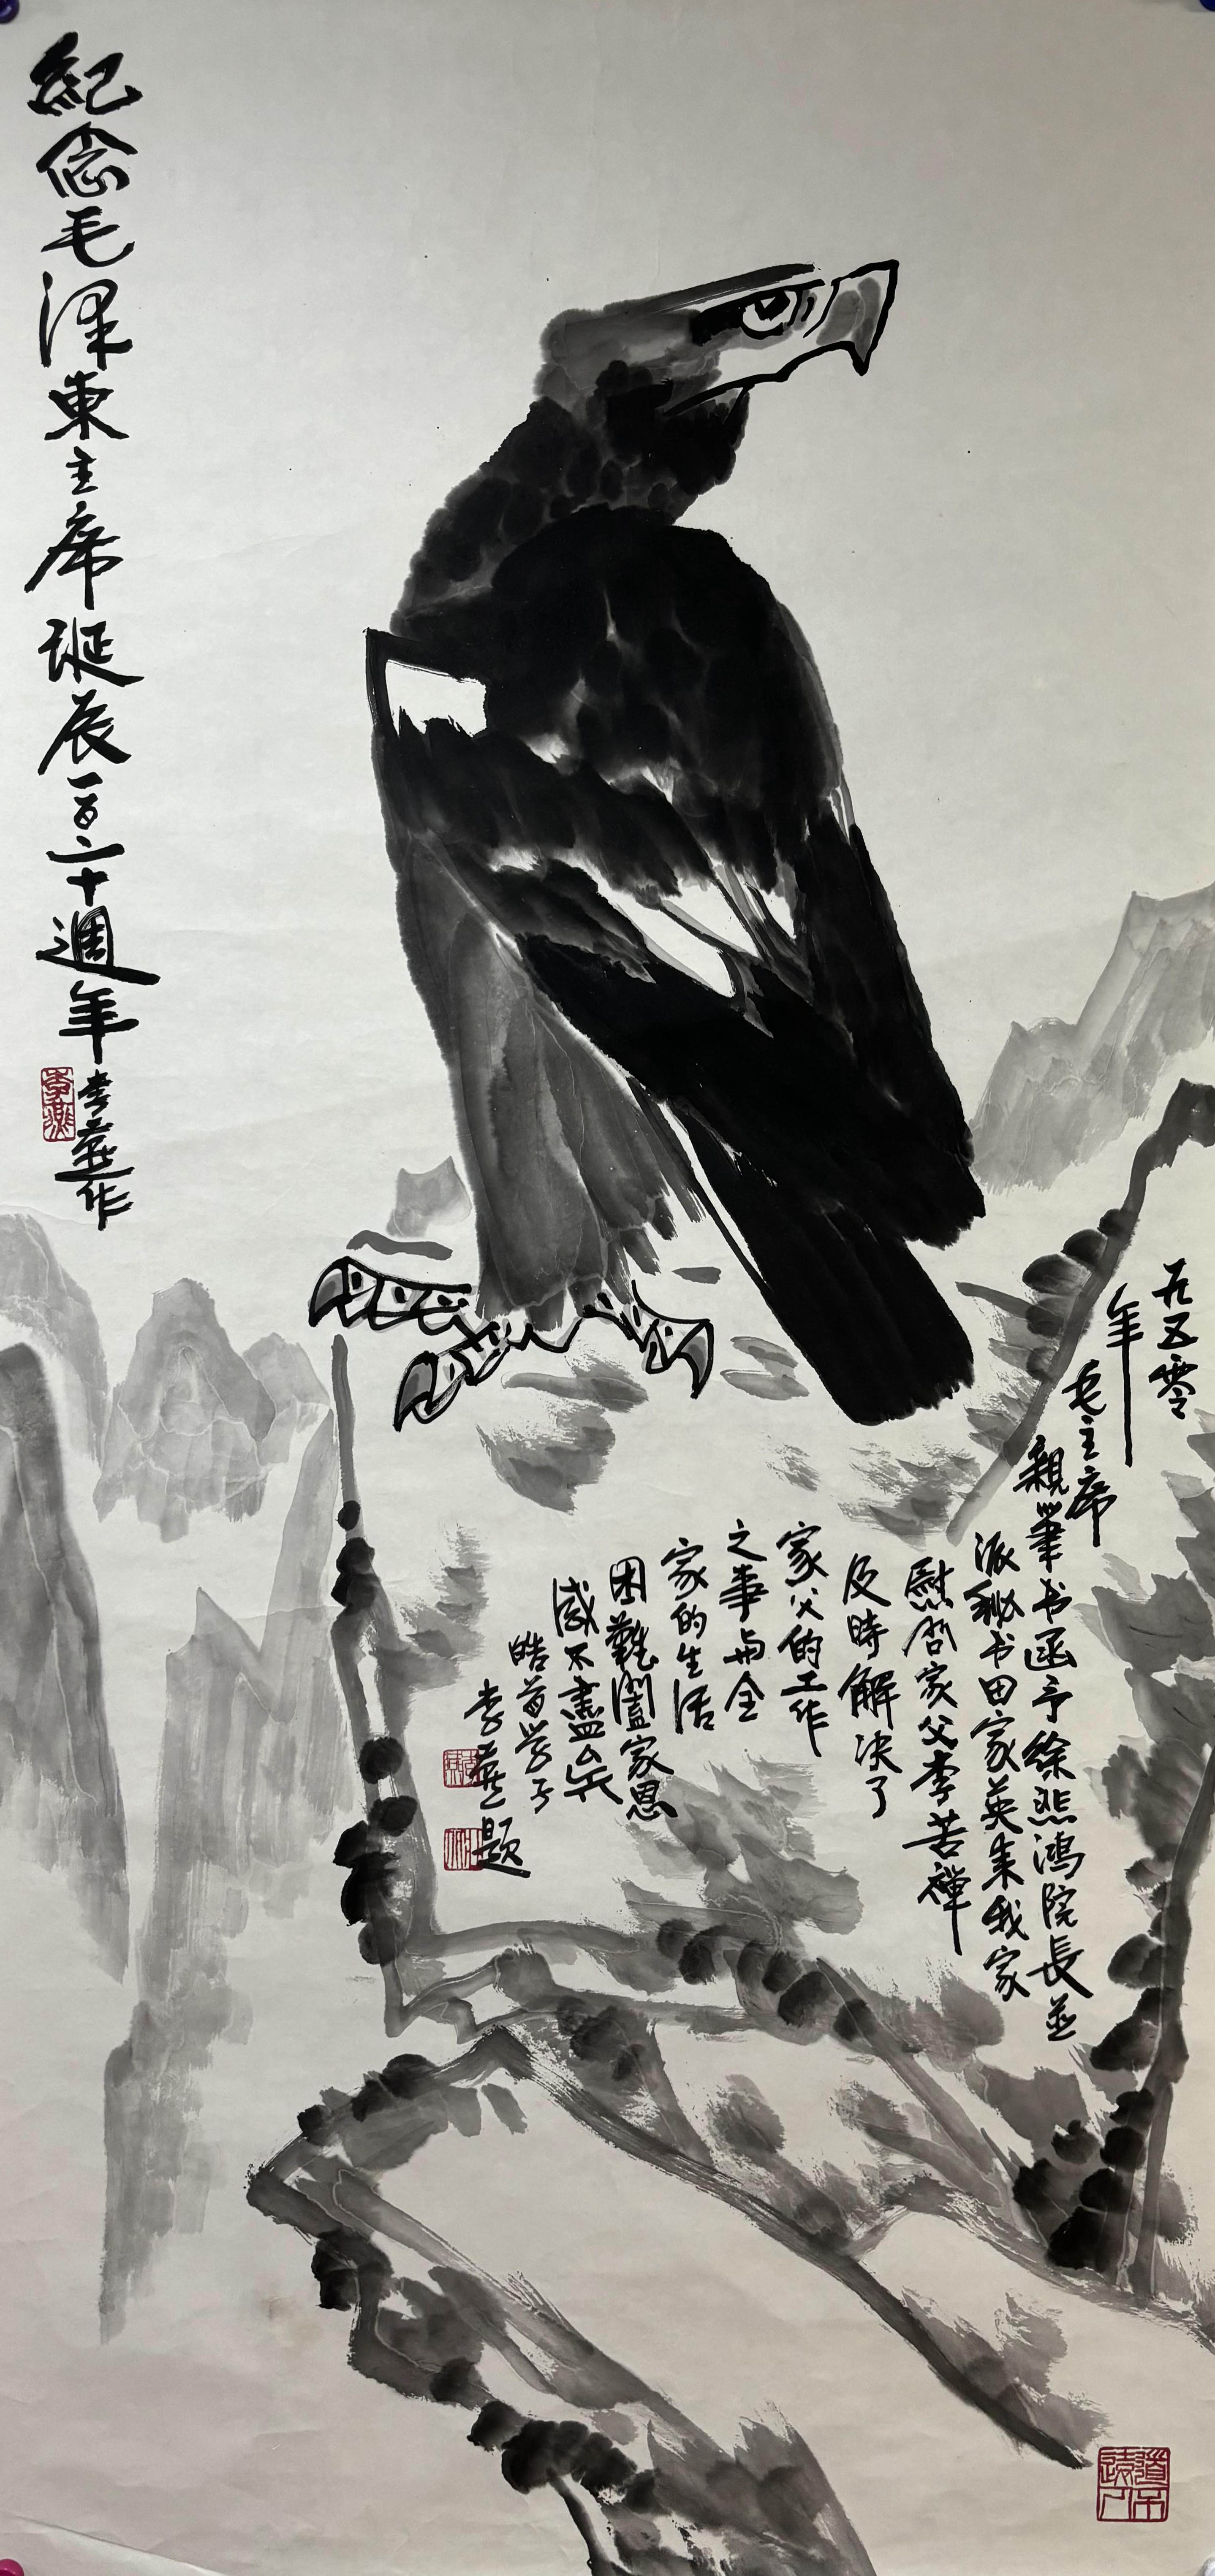 紀念毛澤東主席誕辰一百二十週年
李燕作
一九五零
年
毛主席
親筆书函予徐悲鴻院長並
派秘书田家英来我家
慰问家父李苦禪
及時解决了
家父的工作
之事与全
家的生活
困難闔家恩
感不盡矣
皓首学子
李燕题
道不遠人